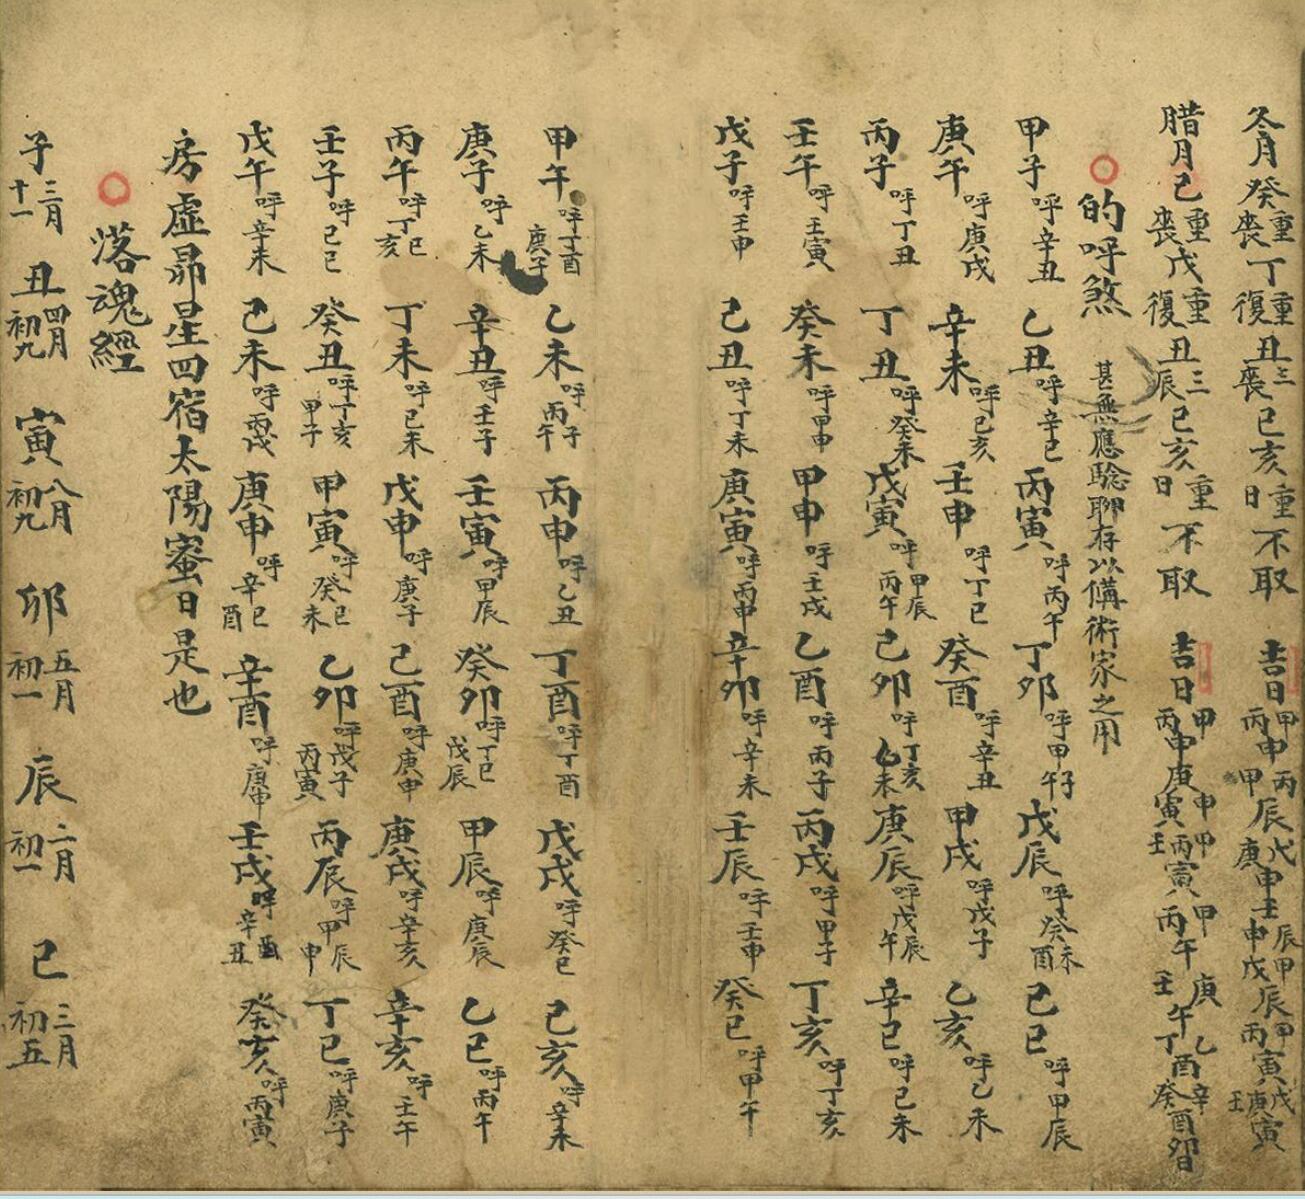 冬月癸重丧丁重復丑三丧己亥重日不取 吉日
腊月己重丧戊重復丑三辰己亥重日不取 吉日
的呼煞 甚無應驗聊存以備術家之用
甲子呼辛丑 乙丑呼辛巳 丙寅呼丙午 丁卯呼甲子午 戊辰呼癸未酉 己巳呼甲辰
庚午呼庚戌 辛未呼己亥 壬申呼丁巳 癸酉呼辛丑 甲戌呼戊子 乙亥呼乙未
丙子呼丁丑 丁丑呼癸未 戊寅呼甲辰丙午 己卯呼丁亥乙未 庚辰呼戊辰午 辛巳呼己未
壬午呼壬寅 癸未呼甲申 甲申呼壬戌 乙酉呼丙子 丙戌呼甲子 丁亥呼丁亥
戊子呼壬申 己丑呼丁未 庚寅呼丙申 辛卯呼辛未 壬辰呼壬申 癸巳呼甲午
甲午呼丁酉庚子 乙未呼丙子午 丙申呼乙丑 丁酉呼丁酉 戊戌呼癸巳 己亥呼辛未
庚子呼乙未 辛丑呼壬子 壬寅呼甲辰 癸卯呼丁巳戊辰 甲辰呼庚辰 乙巳呼丙午
丙午呼丁巳亥 丁未呼己未 戊申呼庚子 己酉呼庚申 庚戌呼辛亥 辛亥呼壬午
壬子呼己巳 癸丑呼丁亥甲子 甲寅呼癸巳未 乙卯呼戊子丙寅 丙辰呼甲辰申 丁巳呼庚子
戊午呼辛未 己未呼 庚申呼辛巳酉 辛酉呼庚申 壬戌呼辛酉丑 癸亥呼丙寅
房虛昴星四宿太陽蜜日是也
落魂經
子三月十一 丑四月初九 寅八月初九 卯五月初一 辰二月初一 巳三月初五